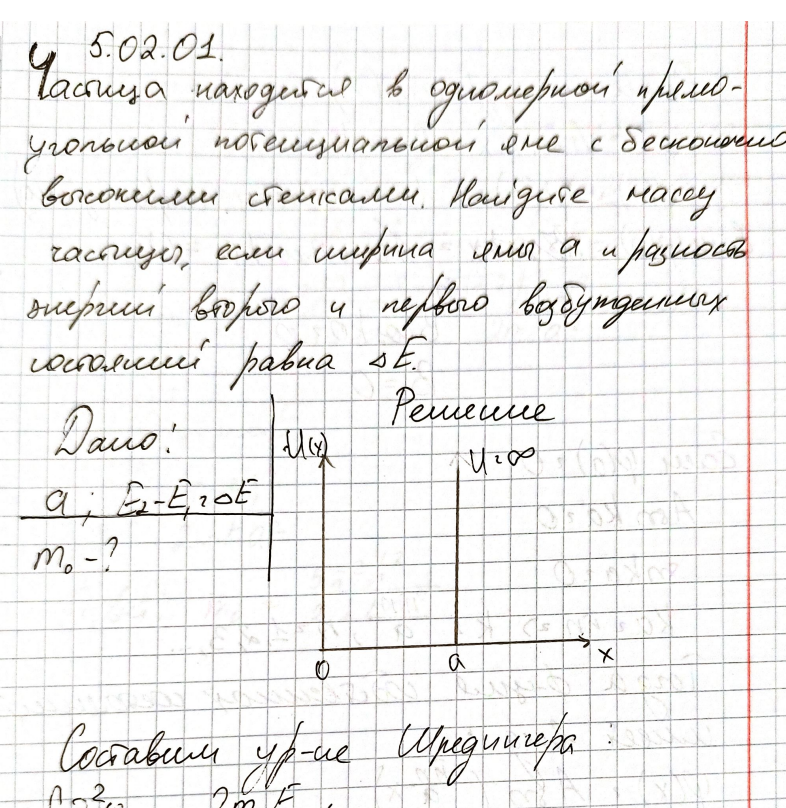 Ч 5.02.01.
Частица находится в одномерной прямо-
угольной потенциальной яме с бесконечно
высокими стенками. Найдите массу
частицы, если ширина ямы a и разность
энергий второго и первого возбужденных
состояний равна ΔE.
Решение
Дано:
a; E₂-E₁=ΔE
m₀-?
U(x)
U=∞
0
a
x
Составим ур-ие Шредингера: